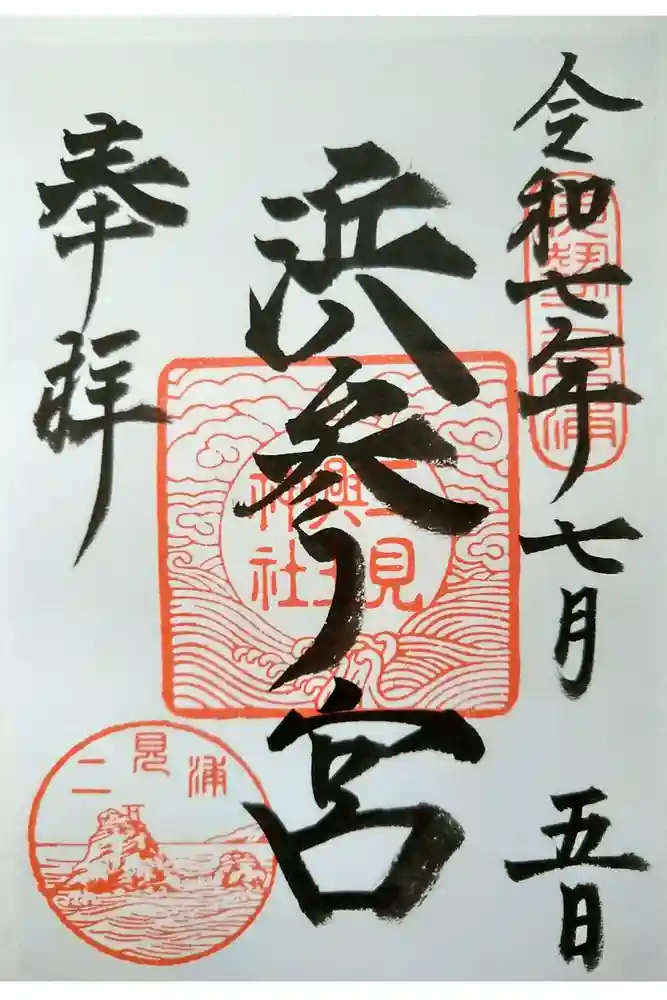 令和七年七月五日
伊勢二見浦
浜参宮
二見
興玉
神社
奉拝
二見浦